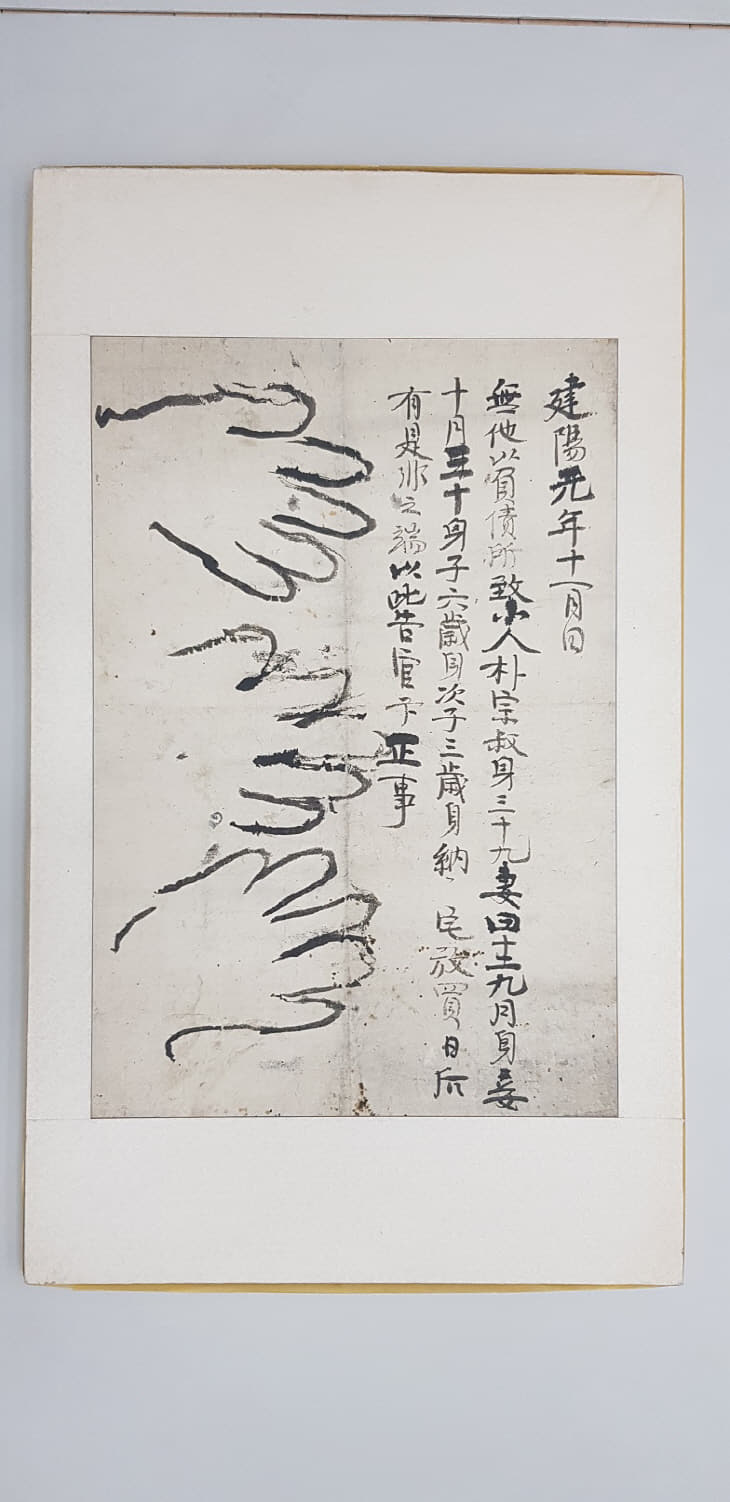 建陽元年十一月日
無他以負債所致小人朴宗叔身三十九妻田十二九月身妾
十月三十身子六歲身次子三歲身納宅放買日后
有是非之端以此告官卞正事